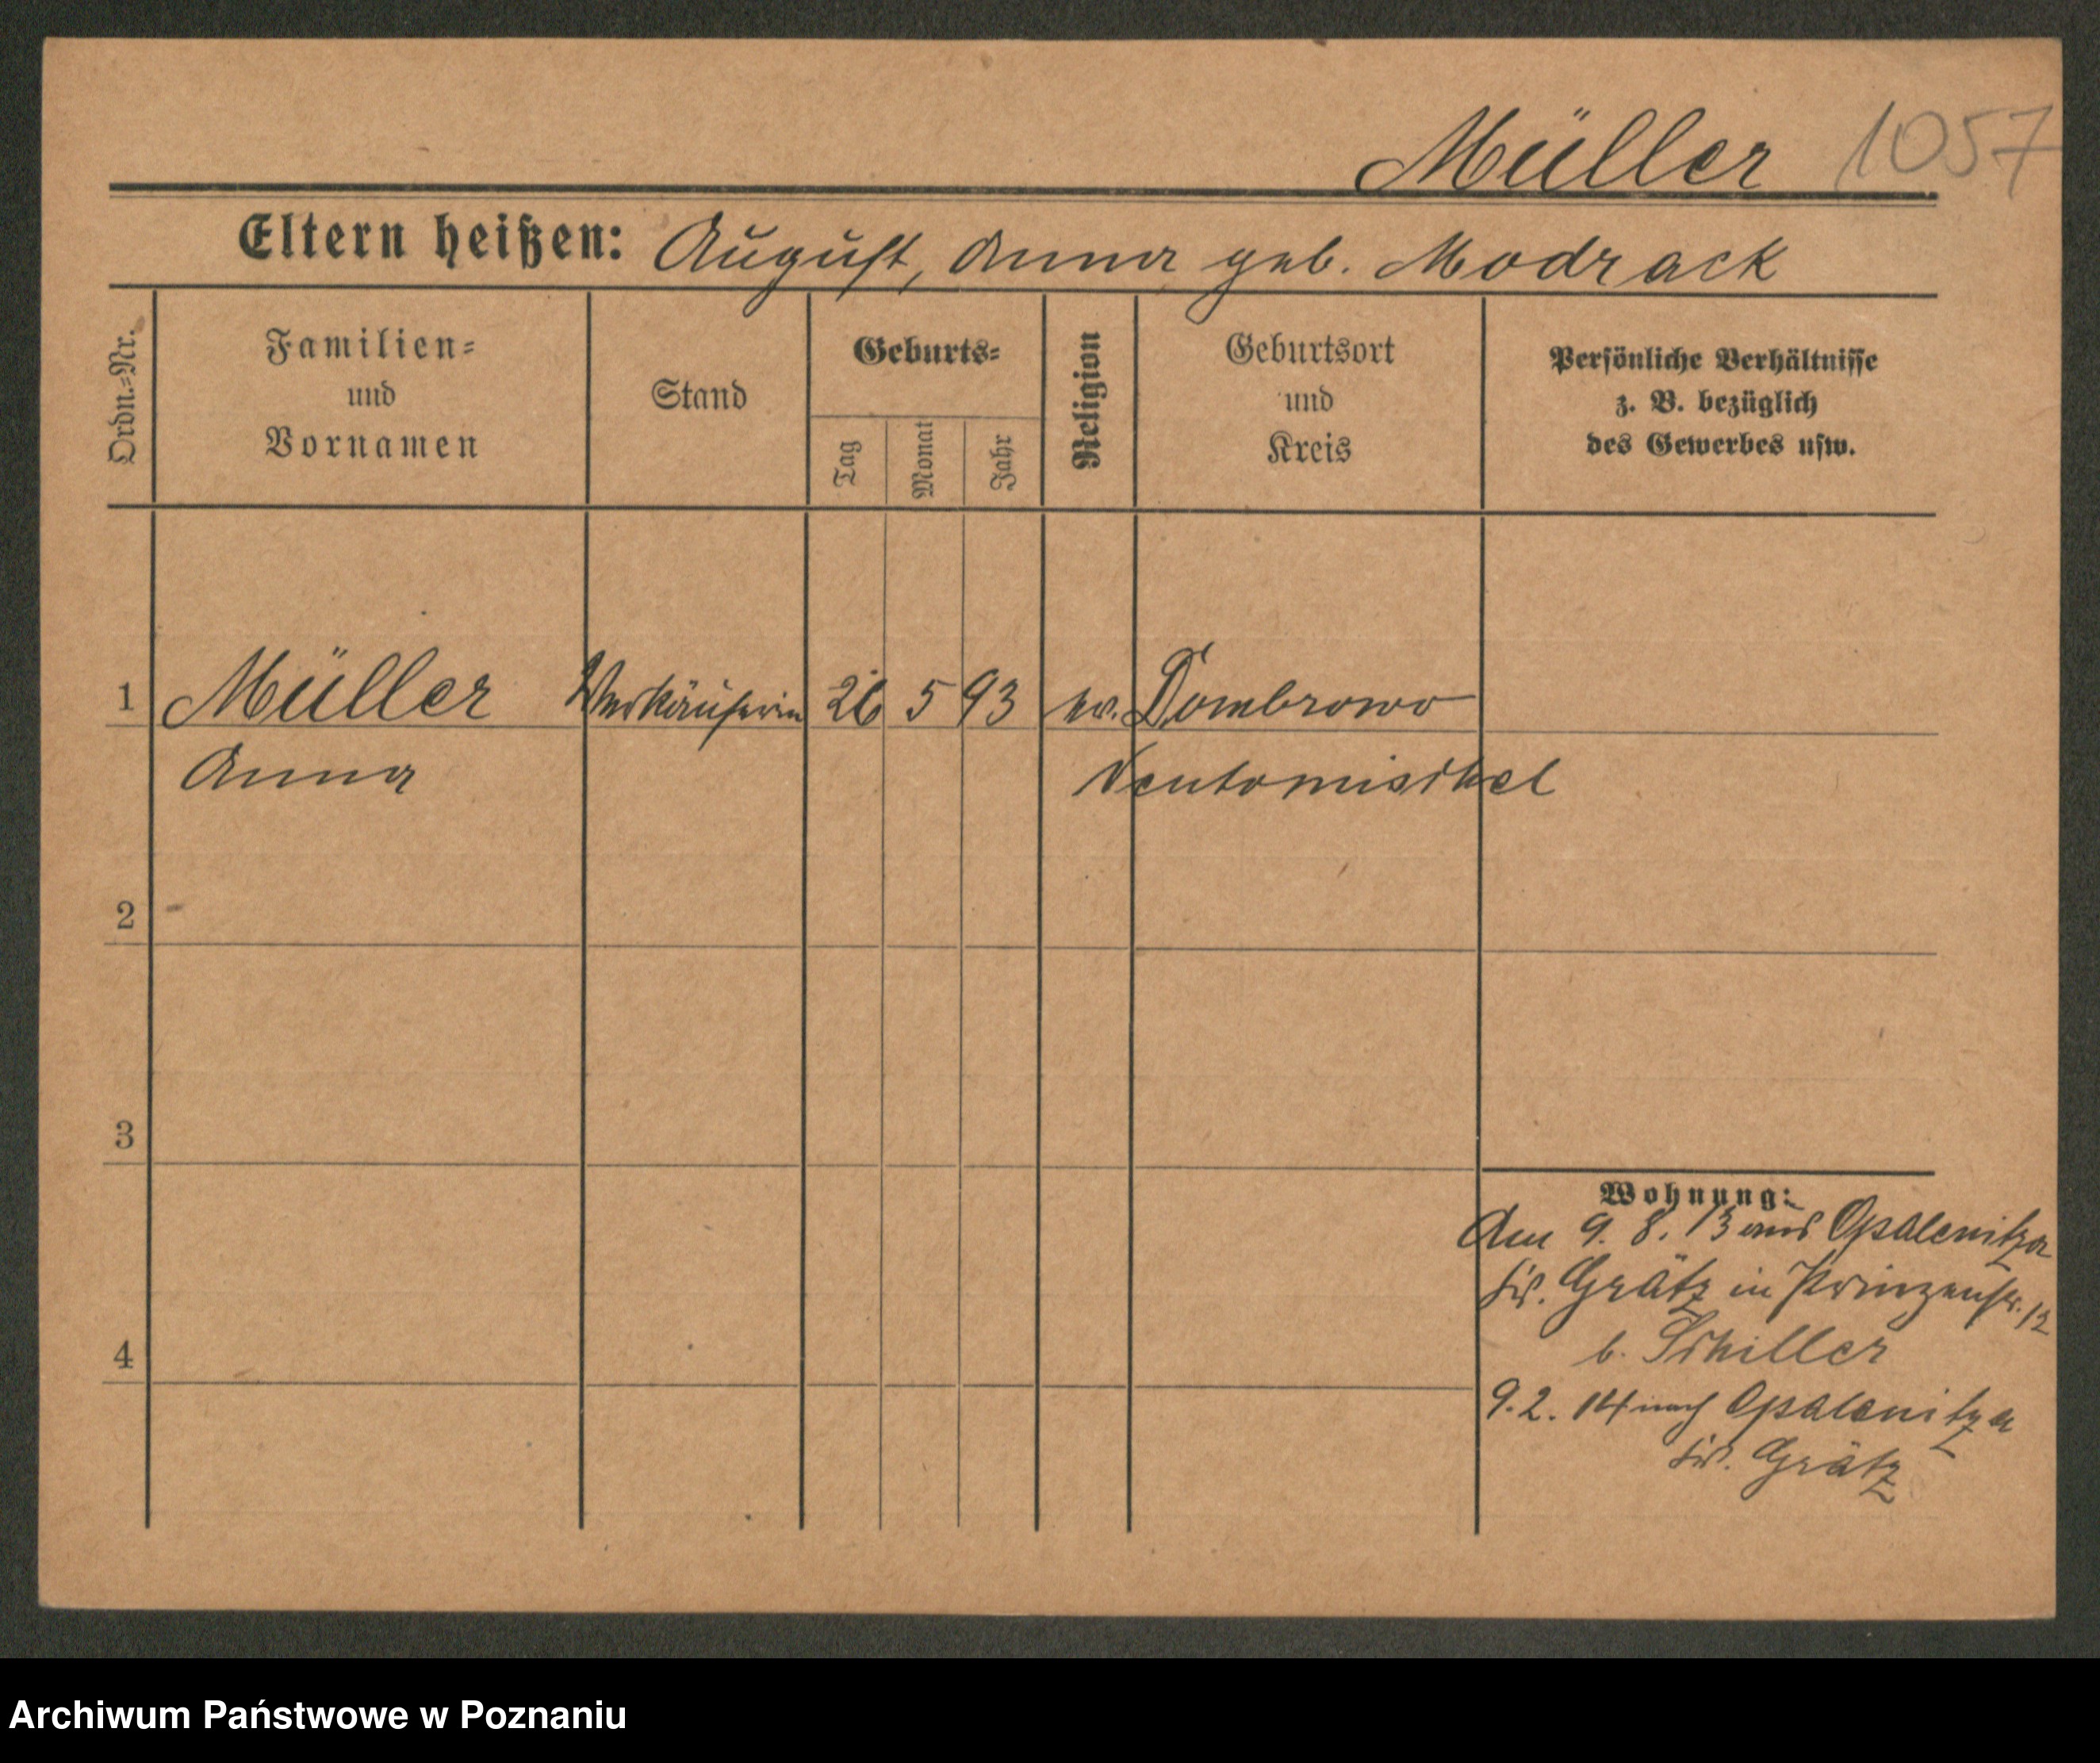 Müller 1057
Eltern heißen: August, Anna geb. Modrack
Ordn.=Nr.
Familien=
und
Vornamen
Stand
Geburts=
Tag
Monat
Jahr
Religion
Geburtsort
und
Kreis
Persönliche Verhältnisse
z. B. bezüglich
des Gewerbes usw.
1 Müller Verkäuferin 26 5 93 ev. Dombrowo
Anna Neutomischel
2
3
4
Wohnung:
Am 9. 8. 13 aus Opalenitza
Kr. Grätz in Prinzenstr. 12
b. Schiller
9. 2. 14 nach Opalenitza
Kr. Grätz
Archiwum Państwowe w Poznaniu